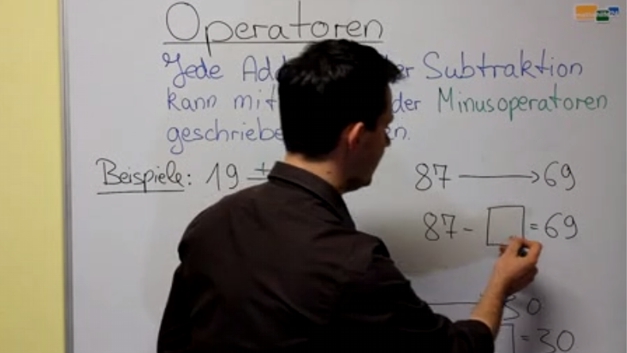 Operatoren
Jede Subtraktion
kann mit der Minusoperatoren
Beispiele: 19 87 → 69
87 - □ = 69
0
= 30